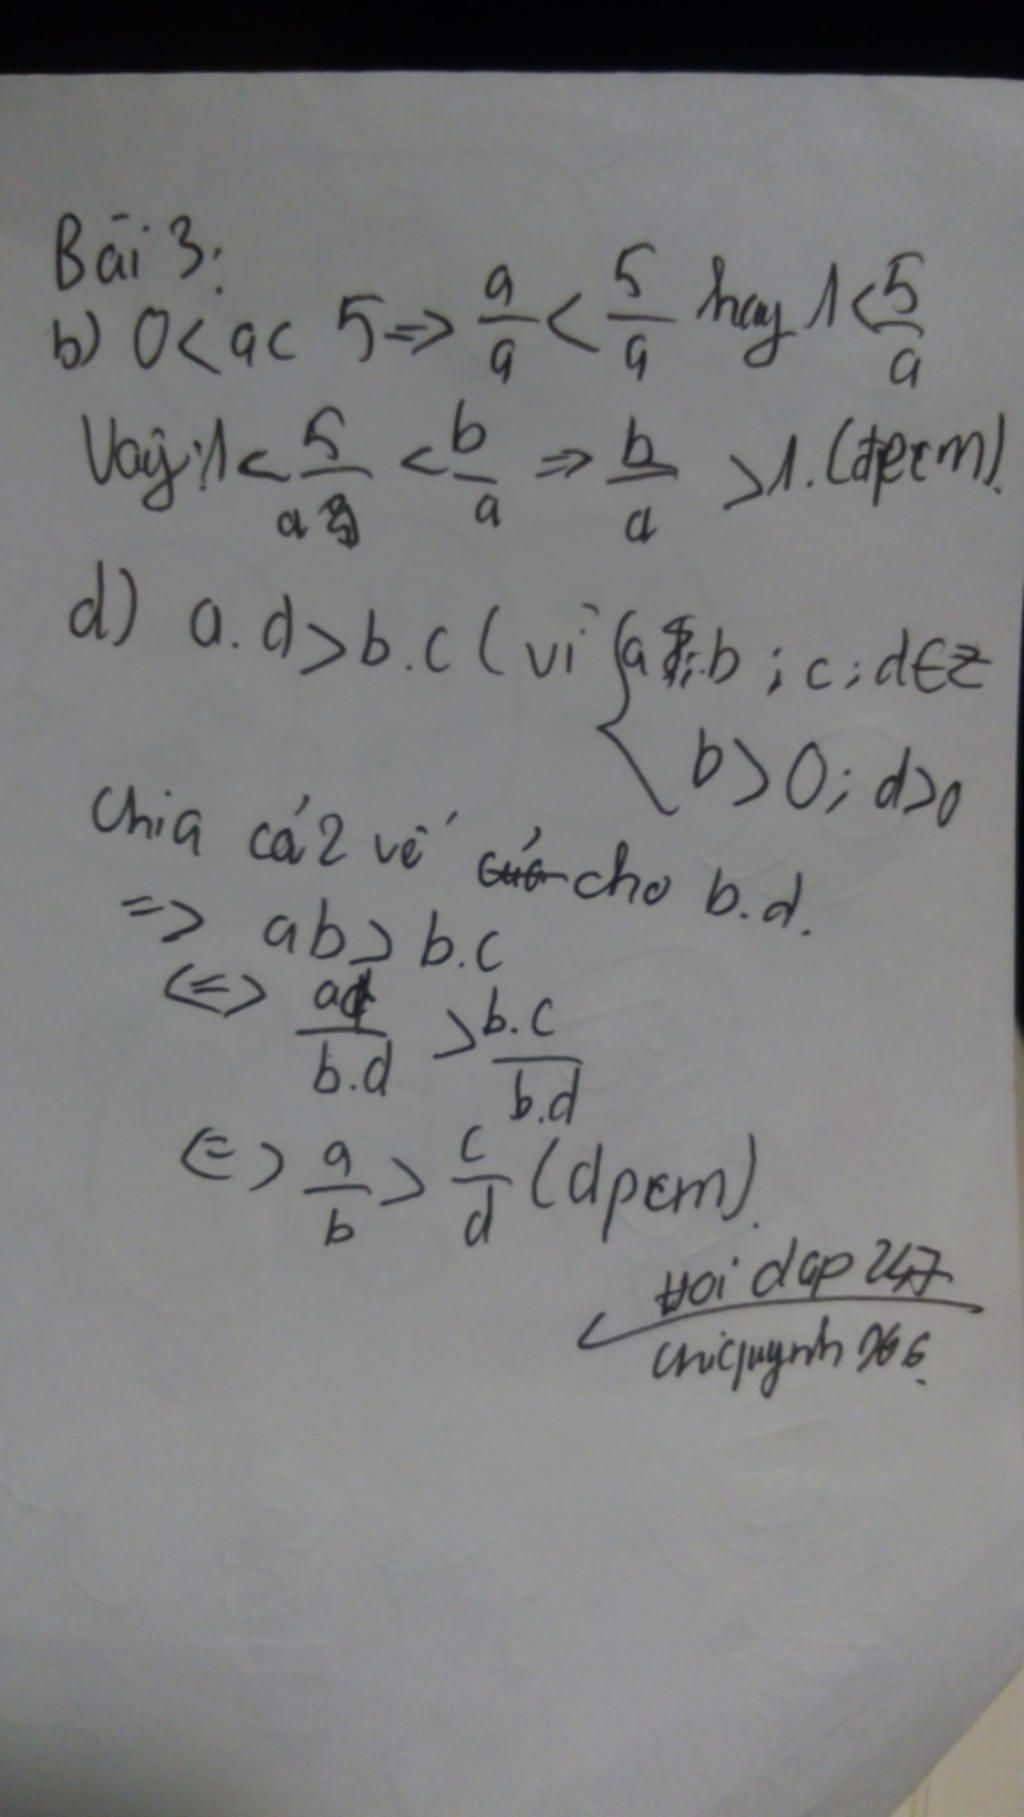 Bài 3:
b) 0 < a < 5 => a/a < 5/a hay 1 < 5/a
Vậy: 1 < 5/a < b/a => b/a > 1. (đpcm).
d) a.d > b.c ( vì { a ; b ; c ; d ∈ Z
b > 0 ; d > 0
Chia cả 2 vế cho b.d.
=> ab > b.c
<=> ad/b.d > b.c/b.d
<=> a/b > c/d (dpcm).
Hoi dap 247